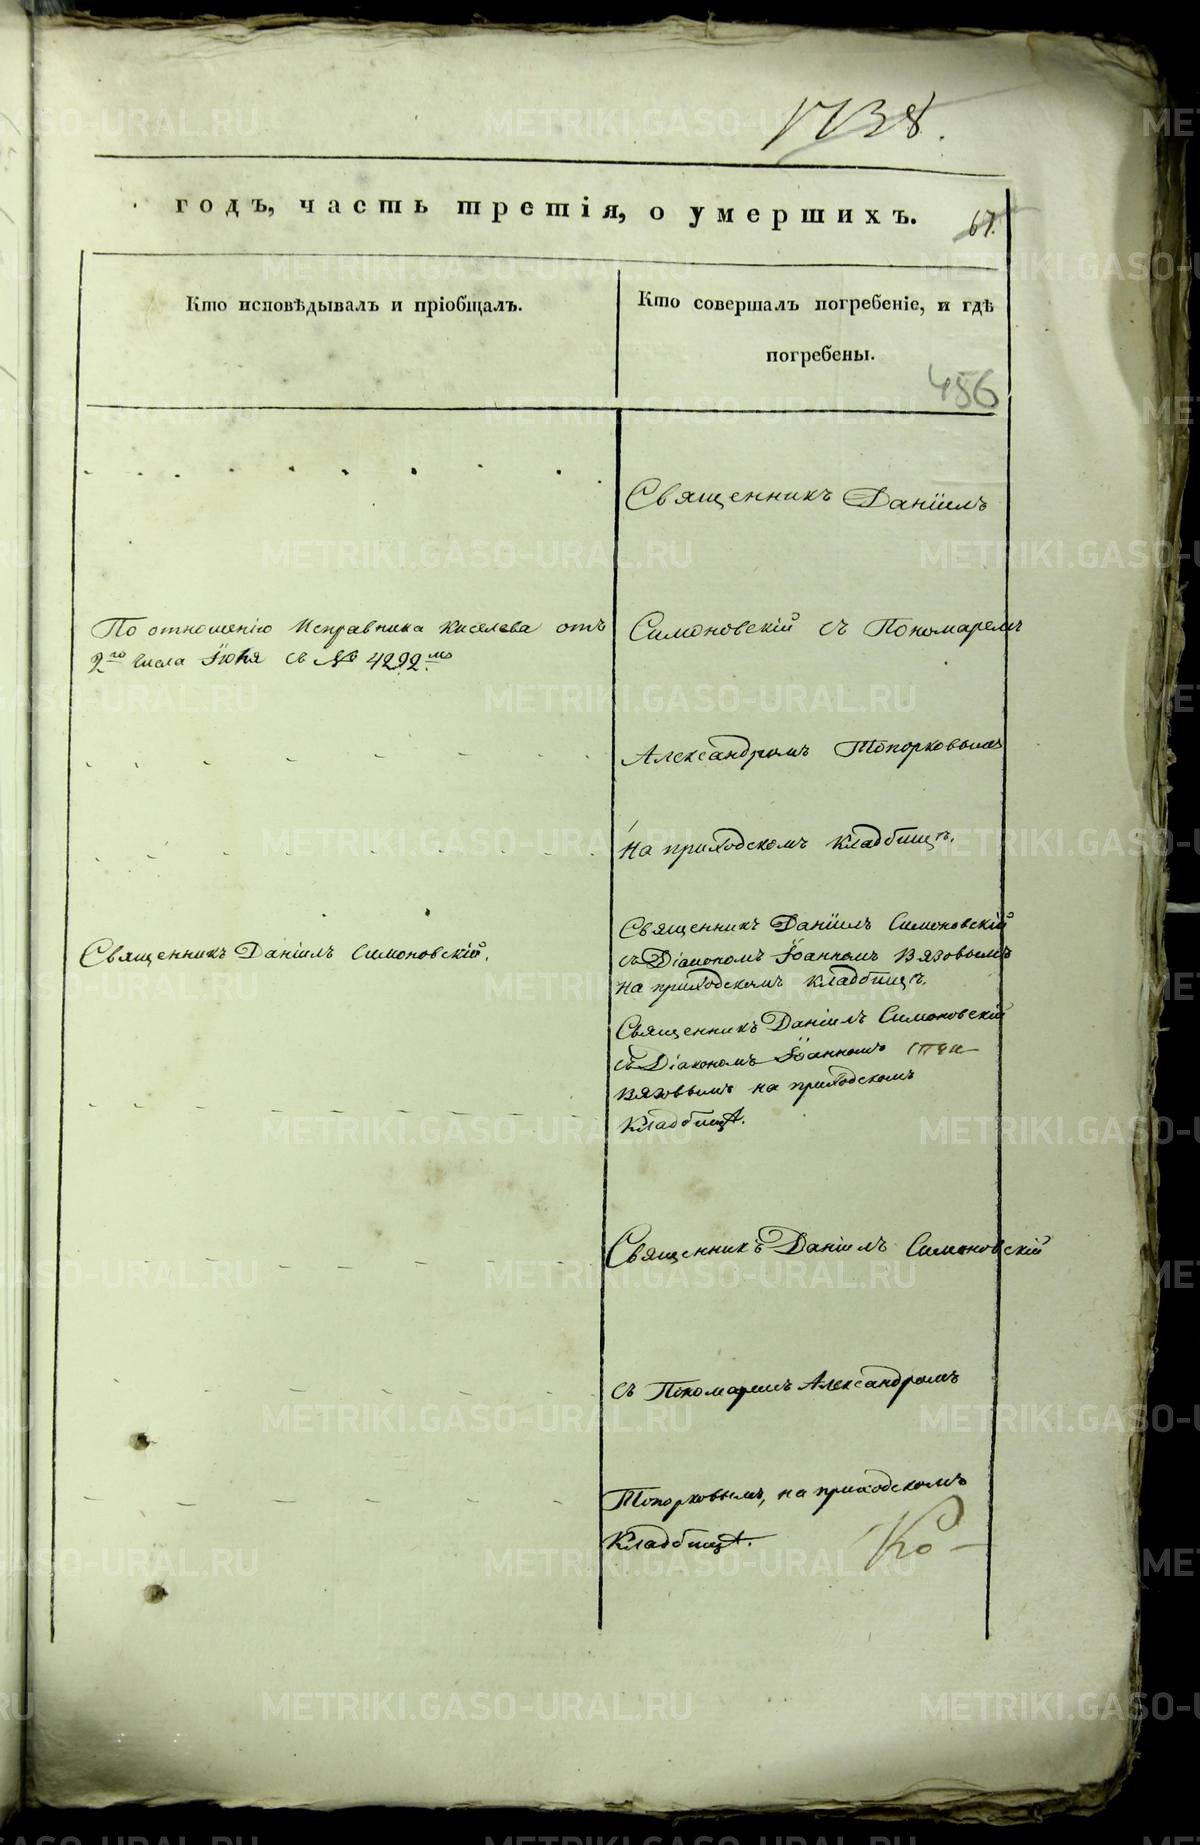 1738.
годъ, часть третія, о умершихъ.
67.
Кто исповѣдывалъ и пріобщалъ.
Кто совершалъ погребеніе, и гдѣ
погребены.
456
Священникъ Даніилъ
По отношенію Исправника Киселева отъ
2го числа Іюля съ № 4292мъ
Симоновскій съ Пономаремъ
Александромъ Топорковымъ
на приходскомъ кладбищѣ.
Священникъ Даніилъ Симоновскій.
Священникъ Даніилъ Симоновскій
съ Діакономъ Іоанномъ Вязовымъ
на приходскомъ кладбищѣ.
Священникъ Даніилъ Симоновскій
съ Діакономъ Іоанномъ
Вязовымъ на приходскомъ
кладбищѣ.
Священникъ Даніилъ Симоновскій
съ Пономаремъ Александромъ
Топорковымъ, на приходскомъ
кладбищѣ.
Ко-
METRIKI.GASO-URAL.RU